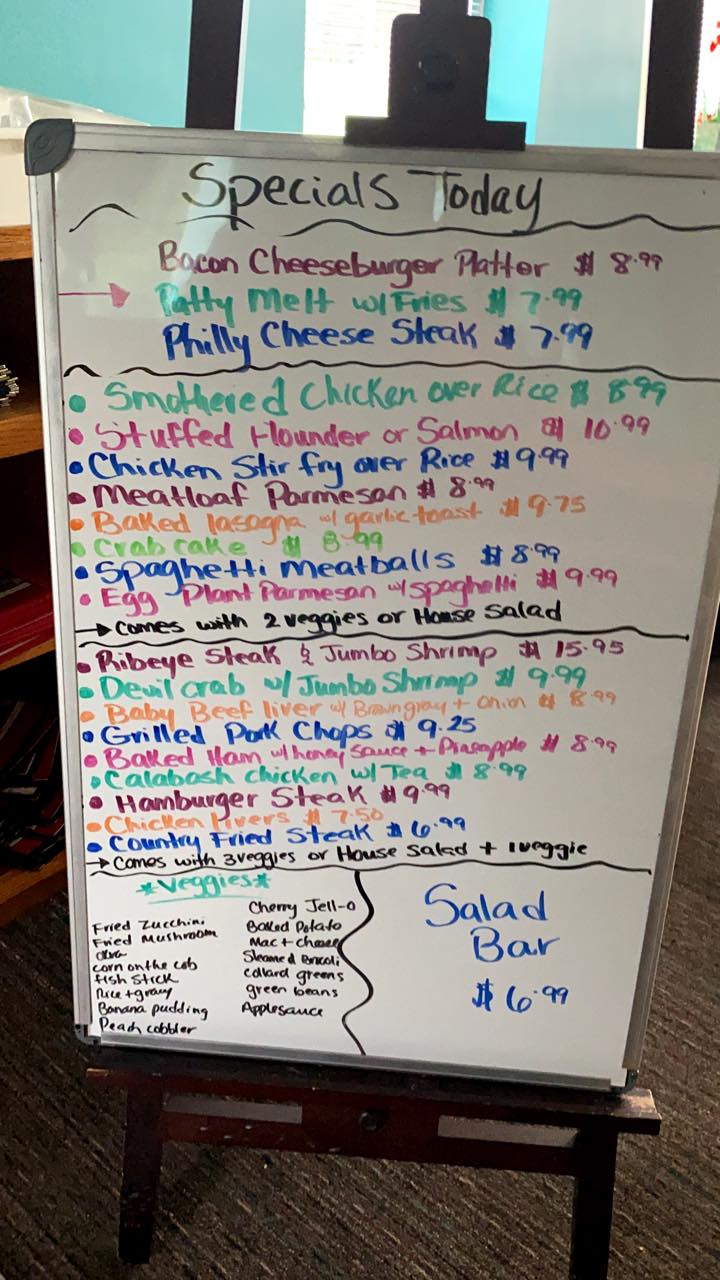 Specials Today
Bacon Cheeseburger Platter $ 8.99
→ Patty Melt w/Fries $ 7.99
Philly Cheese Steak $ 7.99
• Smothered Chicken over Rice $ 8.99
• Stuffed Flounder or Salmon $ 10.99
• Chicken Stir fry over Rice $ 9.99
• Meatloaf Parmesan $ 8.99
• Baked lasagna w/ garlic toast $ 9.75
• Crab cake $ 8.99
• Spaghetti Meatballs $ 8.99
• Egg Plant Parmesan w/spaghetti $ 9.99
→ Comes with 2 veggies or House Salad
• Ribeye Steak & Jumbo Shrimp $ 15.95
• Devil Crab w/ Jumbo Shrimp $ 9.99
• Baby Beef liver w/ Browngravy + onion $ 8.99
• Grilled Pork Chops $ 9.25
• Baked Ham w/honey Sauce + Pineapple $ 8.99
• Calabash chicken w/ Tea $ 8.99
• Hamburger Steak $ 9.99
• Chicken livers $ 7.50
• Country Fried Steak $ 6.99
→ Comes with 3veggies or House Salad + 1veggie
*Veggies*
Fried Zucchini
Fried Mushroom
okra
corn on the cob
fish Stick
Rice + gravy
Banana pudding
Peach cobbler
Cherry Jell-o
Baked Potato
Mac + cheese
Steamed Brocoli
collard greens
green beans
Applesauce
Salad
Bar
$ 6.99